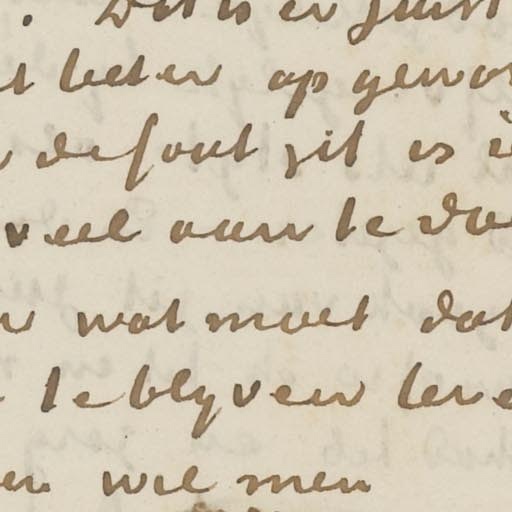 . Dit is er juist
beter op gewor
de fout zit is
veel aan te doe
wat moet dat
te blyven leve
en wil men